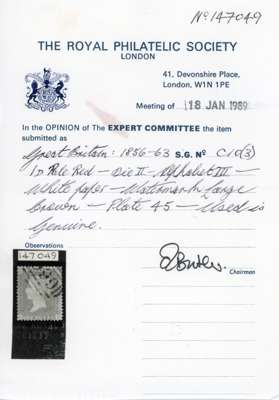 No 147049
THE ROYAL PHILATELIC SOCIETY
LONDON
41, Devonshire Place,
London, W1N 1PE
Meeting of 18 JAN 1989
In the OPINION of The EXPERT COMMITTEE the item
submitted as
Great Britain: 1856-63 S.G. No C10(3)
1D Pale Red - Die II - Alphabet III -
White paper - Watermark Large
Crown - Plate 45 - Used is
Genuine.
Observations
147049
Chairman